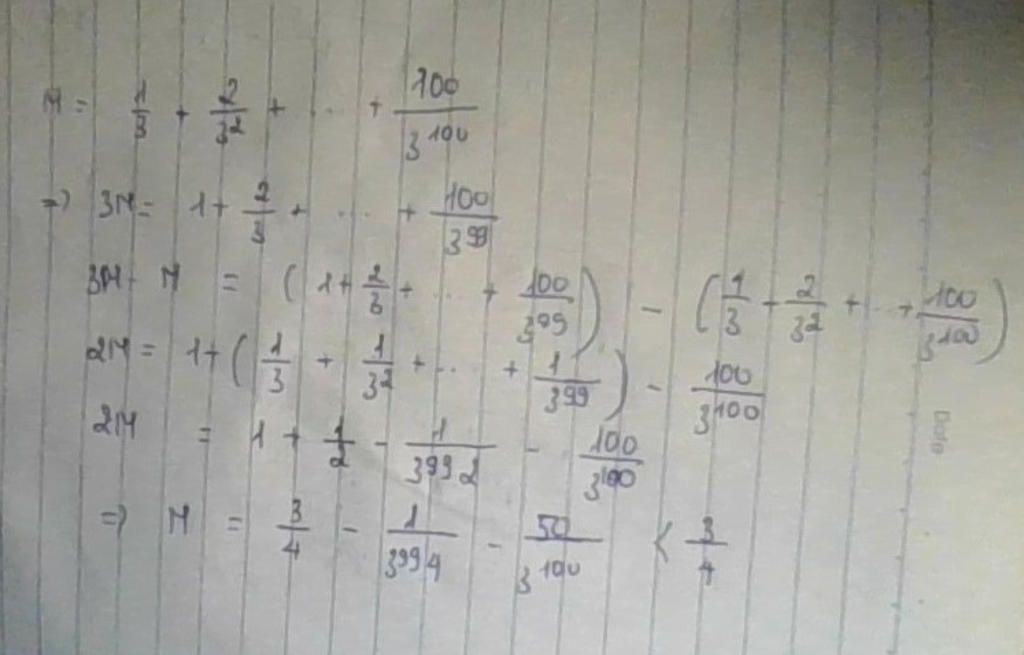 M = 1/3 + 2/3^2 + ... + 100/3^100
=> 3M = 1 + 2/3 + ... + 100/3^99
3M - M = (1 + 2/3 + ... + 100/3^99) - (1/3 + 2/3^2 + ... + 100/3^100)
2M = 1 + (1/3 + 1/3^2 + ... + 1/3^99) - 100/3^100
2M = 1 + 1/2 - 1/(3^99 2) - 100/3^100
=> M = 3/4 - 1/(3^99 4) - 50/3^100 < 3/4
Date